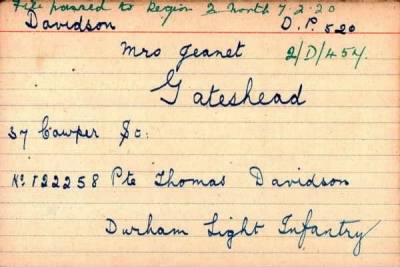 File passed to Region 2 North 7.2.20
Davidson D.P. 520
Mrs Jeanet 2/D/454.
Gateshead
57 Cowper St:
No. 122258 Pte Thomas Davidson
Durham Light Infantry